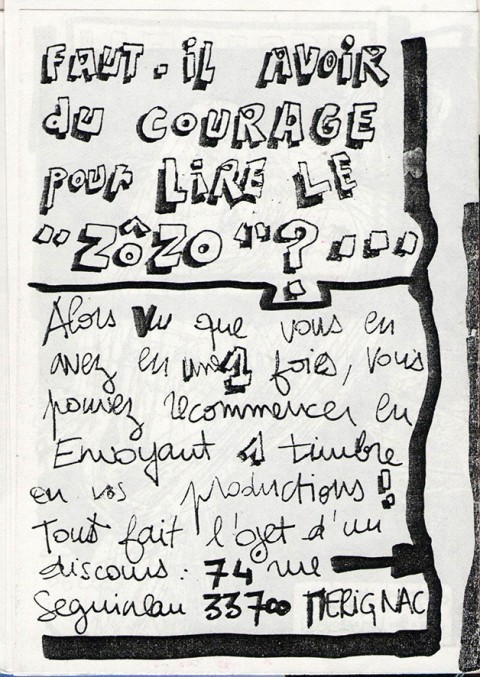 FAUT-iL AVOiR
du COURAGE
pour LiRE LE
"ZÔZO"? ...
Alors Vu que vous en
avez eu une 1 fois, Vous
pouvez recommencer en
Envoyant 1 timbre
ou vos productions!
Tout fait l'ojet d'un
discours: 74 rue
Seguineau 33700 MERIGNAC